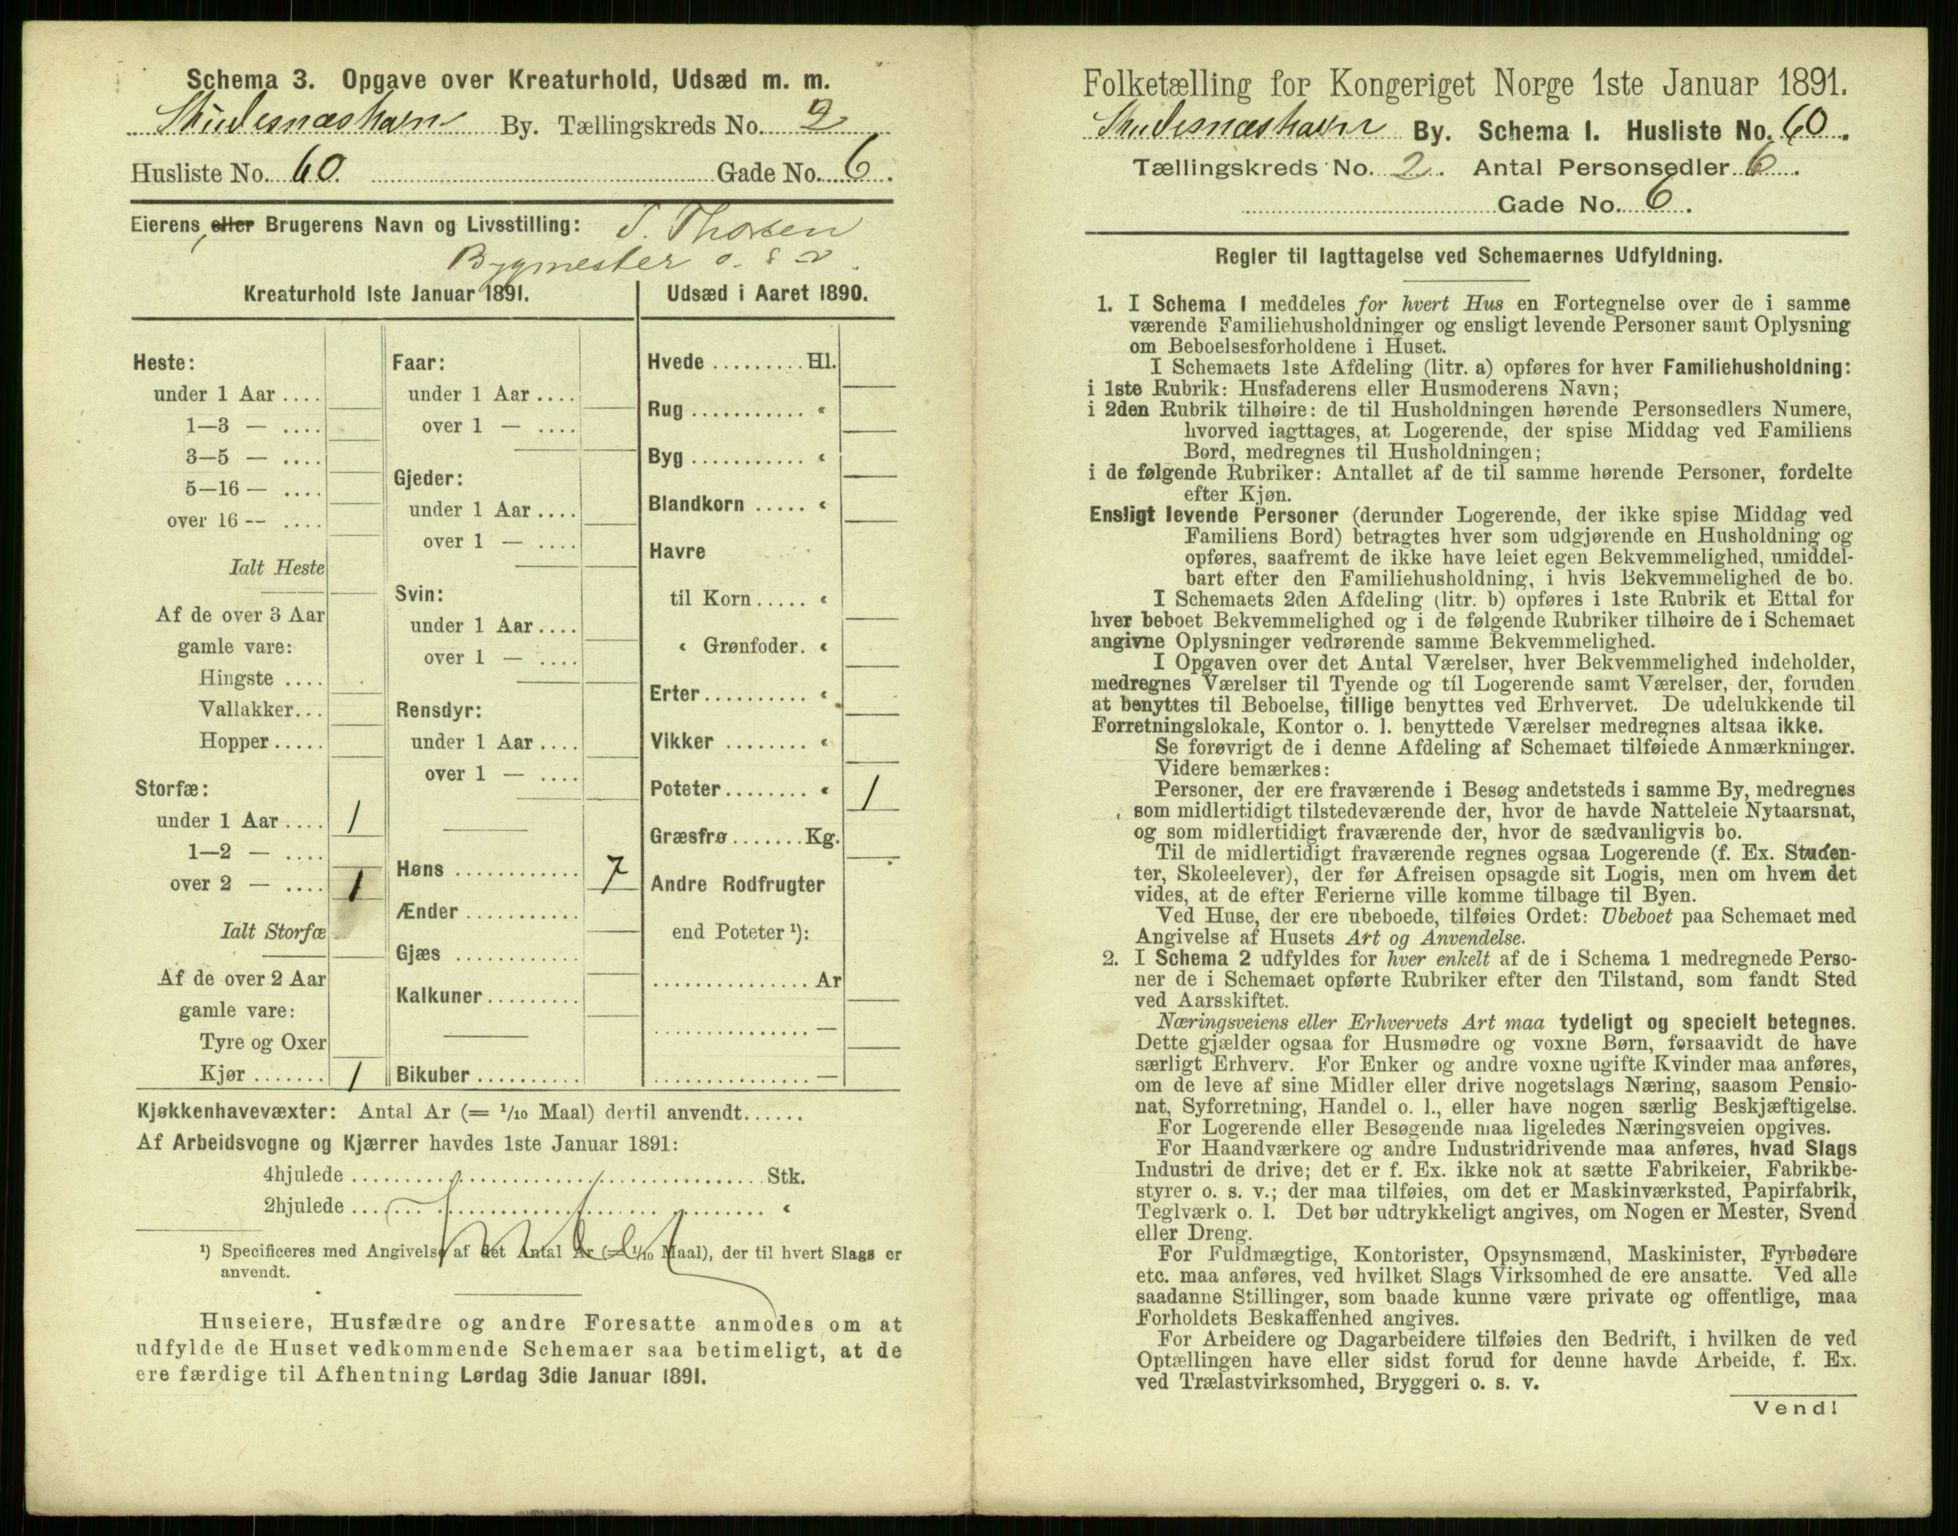 Schema 3. Opgave over Kreaturhold, Udsæd m. m.
Skudesnæshavn By. Tællingskreds No. 2
Husliste No. 60. Gade No. 6.
Eierens, eller Brugerens Navn og Livsstilling: T. Thorsen
Bygmester o. s v.
Kreaturhold 1ste Januar 1891.
Heste:
under 1 Aar ....
1—3 — ....
3—5 — ....
5—16 — ....
over 16 — ....
Ialt Heste
Af de over 3 Aar
gamle vare:
Hingste ....
Vallakker...
Hopper.....
Storfæ:
under 1 Aar .... 1
1—2 — ....
over 2 — .... 1
Ialt Storfæ
Af de over 2 Aar
gamle vare:
Tyre og Oxer
Kjør ....... 1
Faar:
under 1 Aar ....
over 1 — ....
Gjeder:
under 1 Aar ....
over 1 — ....
Svin:
under 1 Aar ....
over 1 — ....
Rensdyr:
under 1 Aar ....
over 1 — ....
Høns ............ 7
Ænder ...........
Gjæs ............
Kalkuner.........
Bikuber..........
Udsæd i Aaret 1890.
Hvede .........Hl.
Rug ........... «
Byg ........... «
Blandkorn ..... «
Havre
til Korn..... «
« Grønfoder. «
Erter.......... «
Vikker ........ «
Poteter........ « 1
Græsfrø.......Kg.
Andre Rodfrugter
end Poteter ¹):
...............Ar
............... —
............... —
Kjøkkenhavevæxter: Antal Ar (= 1/10 Maal) dertil anvendt......
Af Arbeidsvogne og Kjærrer havdes 1ste Januar 1891:
4hjulede ........................................ Stk.
2hjulede ........................................ «
¹) Specificeres med Angivelse af det Antal Ar (= 1/10 Maal), der til hvert Slags er
anvendt.
Huseiere, Husfædre og andre Foresatte anmodes om at
udfylde de Huset vedkommende Schemaer saa betimeligt, at de
ere færdige til Afhentning Lørdag 3die Januar 1891.
Folketælling for Kongeriget Norge 1ste Januar 1891.
Skudesnæshavn By. Schema 1. Husliste No. 60.
Tællingskreds No. 2. Antal Personsedler 6.
Gade No. 6.
Regler til Iagttagelse ved Schemaernes Udfyldning.
1. I Schema 1 meddeles for hvert Hus en Fortegnelse over de i samme
værende Familiehusholdninger og ensligt levende Personer samt Oplysning
om Beboelsesforholdene i Huset.
I Schemaets 1ste Afdeling (litr. a) opføres for hver Familiehusholdning:
i 1ste Rubrik: Husfaderens eller Husmoderens Navn;
i 2den Rubrik tilhøire: de til Husholdningen hørende Personsedlers Numere,
hvorved iagttages, at Logerende, der spise Middag ved Familiens
Bord, medregnes til Husholdningen;
i de følgende Rubriker: Antallet af de til samme hørende Personer, fordelte
efter Kjøn.
Ensligt levende Personer (derunder Logerende, der ikke spise Middag ved
Familiens Bord) betragtes hver som udgjørende en Husholdning og
opføres, saafremt de ikke have leiet egen Bekvemmelighed, umiddel-
bart efter den Familiehusholdning, i hvis Bekvemmelighed de bo.
I Schemaets 2den Afdeling (litr. b) opføres i 1ste Rubrik et Ettal for
hver beboet Bekvemmelighed og i de følgende Rubriker tilhøire de i Schemaet
angivne Oplysninger vedrørende samme Bekvemmelighed.
I Opgaven over det Antal Værelser, hver Bekvemmelighed indeholder,
medregnes Værelser til Tyende og til Logerende samt Værelser, der, foruden
at benyttes til Beboelse, tillige benyttes ved Erhvervet. De udelukkende til
Forretningslokale, Kontor o. l. benyttede Værelser medregnes altsaa ikke.
Se forøvrigt de i denne Afdeling af Schemaet tilføiede Anmærkninger.
Videre bemærkes:
Personer, der ere fraværende i Besøg andetsteds i samme By, medregnes
som midlertidigt tilstedeværende der, hvor de havde Natteleie Nytaarsnat,
og som midlertidigt fraværende der, hvor de sædvanligvis bo.
Til de midlertidigt fraværende regnes ogsaa Logerende (f. Ex. Studen-
ter, Skoleelever), der før Afreisen opsagde sit Logis, men om hvem det
vides, at de efter Ferierne ville komme tilbage til Byen.
Ved Huse, der ere ubeboede, tilføies Ordet: Ubeboet paa Schemaet med
Angivelse af Husets Art og Anvendelse.
2. I Schema 2 udfyldes for hver enkelt af de i Schema 1 medregnede Perso-
ner de i Schemaet opførte Rubriker efter den Tilstand, som fandt Sted
ved Aarsskiftet.
Næringsveiens eller Erhvervets Art maa tydeligt og specielt betegnes.
Dette gjælder ogsaa for Husmødre og voxne Børn, forsaavidt de have
særligt Erhverv. For Enker og andre voxne ugifte Kvinder maa anføres,
om de leve af sine Midler eller drive nogetslags Næring, saasom Pensio-
nat, Syforretning, Handel o. l., eller have nogen særlig Beskjæftigelse.
For Logerende eller Besøgende maa ligeledes Næringsveien opgives.
For Haandværkere og andre Industridrivende maa anføres, hvad Slags
Industri de drive; det er f. Ex. ikke nok at sætte Fabrikeier, Fabrikbe-
styrer o. s. v.; der maa tilføies, om det er Maskinværksted, Papirfabrik,
Teglværk o. l. Det bør udtrykkeligt angives, om Nogen er Mester, Svend
eller Dreng.
For Fuldmægtige, Kontorister, Opsynsmænd, Maskinister, Fyrbødere
etc. maa anføres, ved hvilket Slags Virksomhed de ere ansatte. Ved alle
saadanne Stillinger, som baade kunne være private og offentlige, maa
Forholdets Beskaffenhed angives.
For Arbeidere og Dagarbeidere tilføies den Bedrift, i hvilken de ved
Optællingen have eller sidst forud for denne havde Arbeide, f. Ex.
ved Trælastvirksomhed, Bryggeri o. s. v.
Vend!